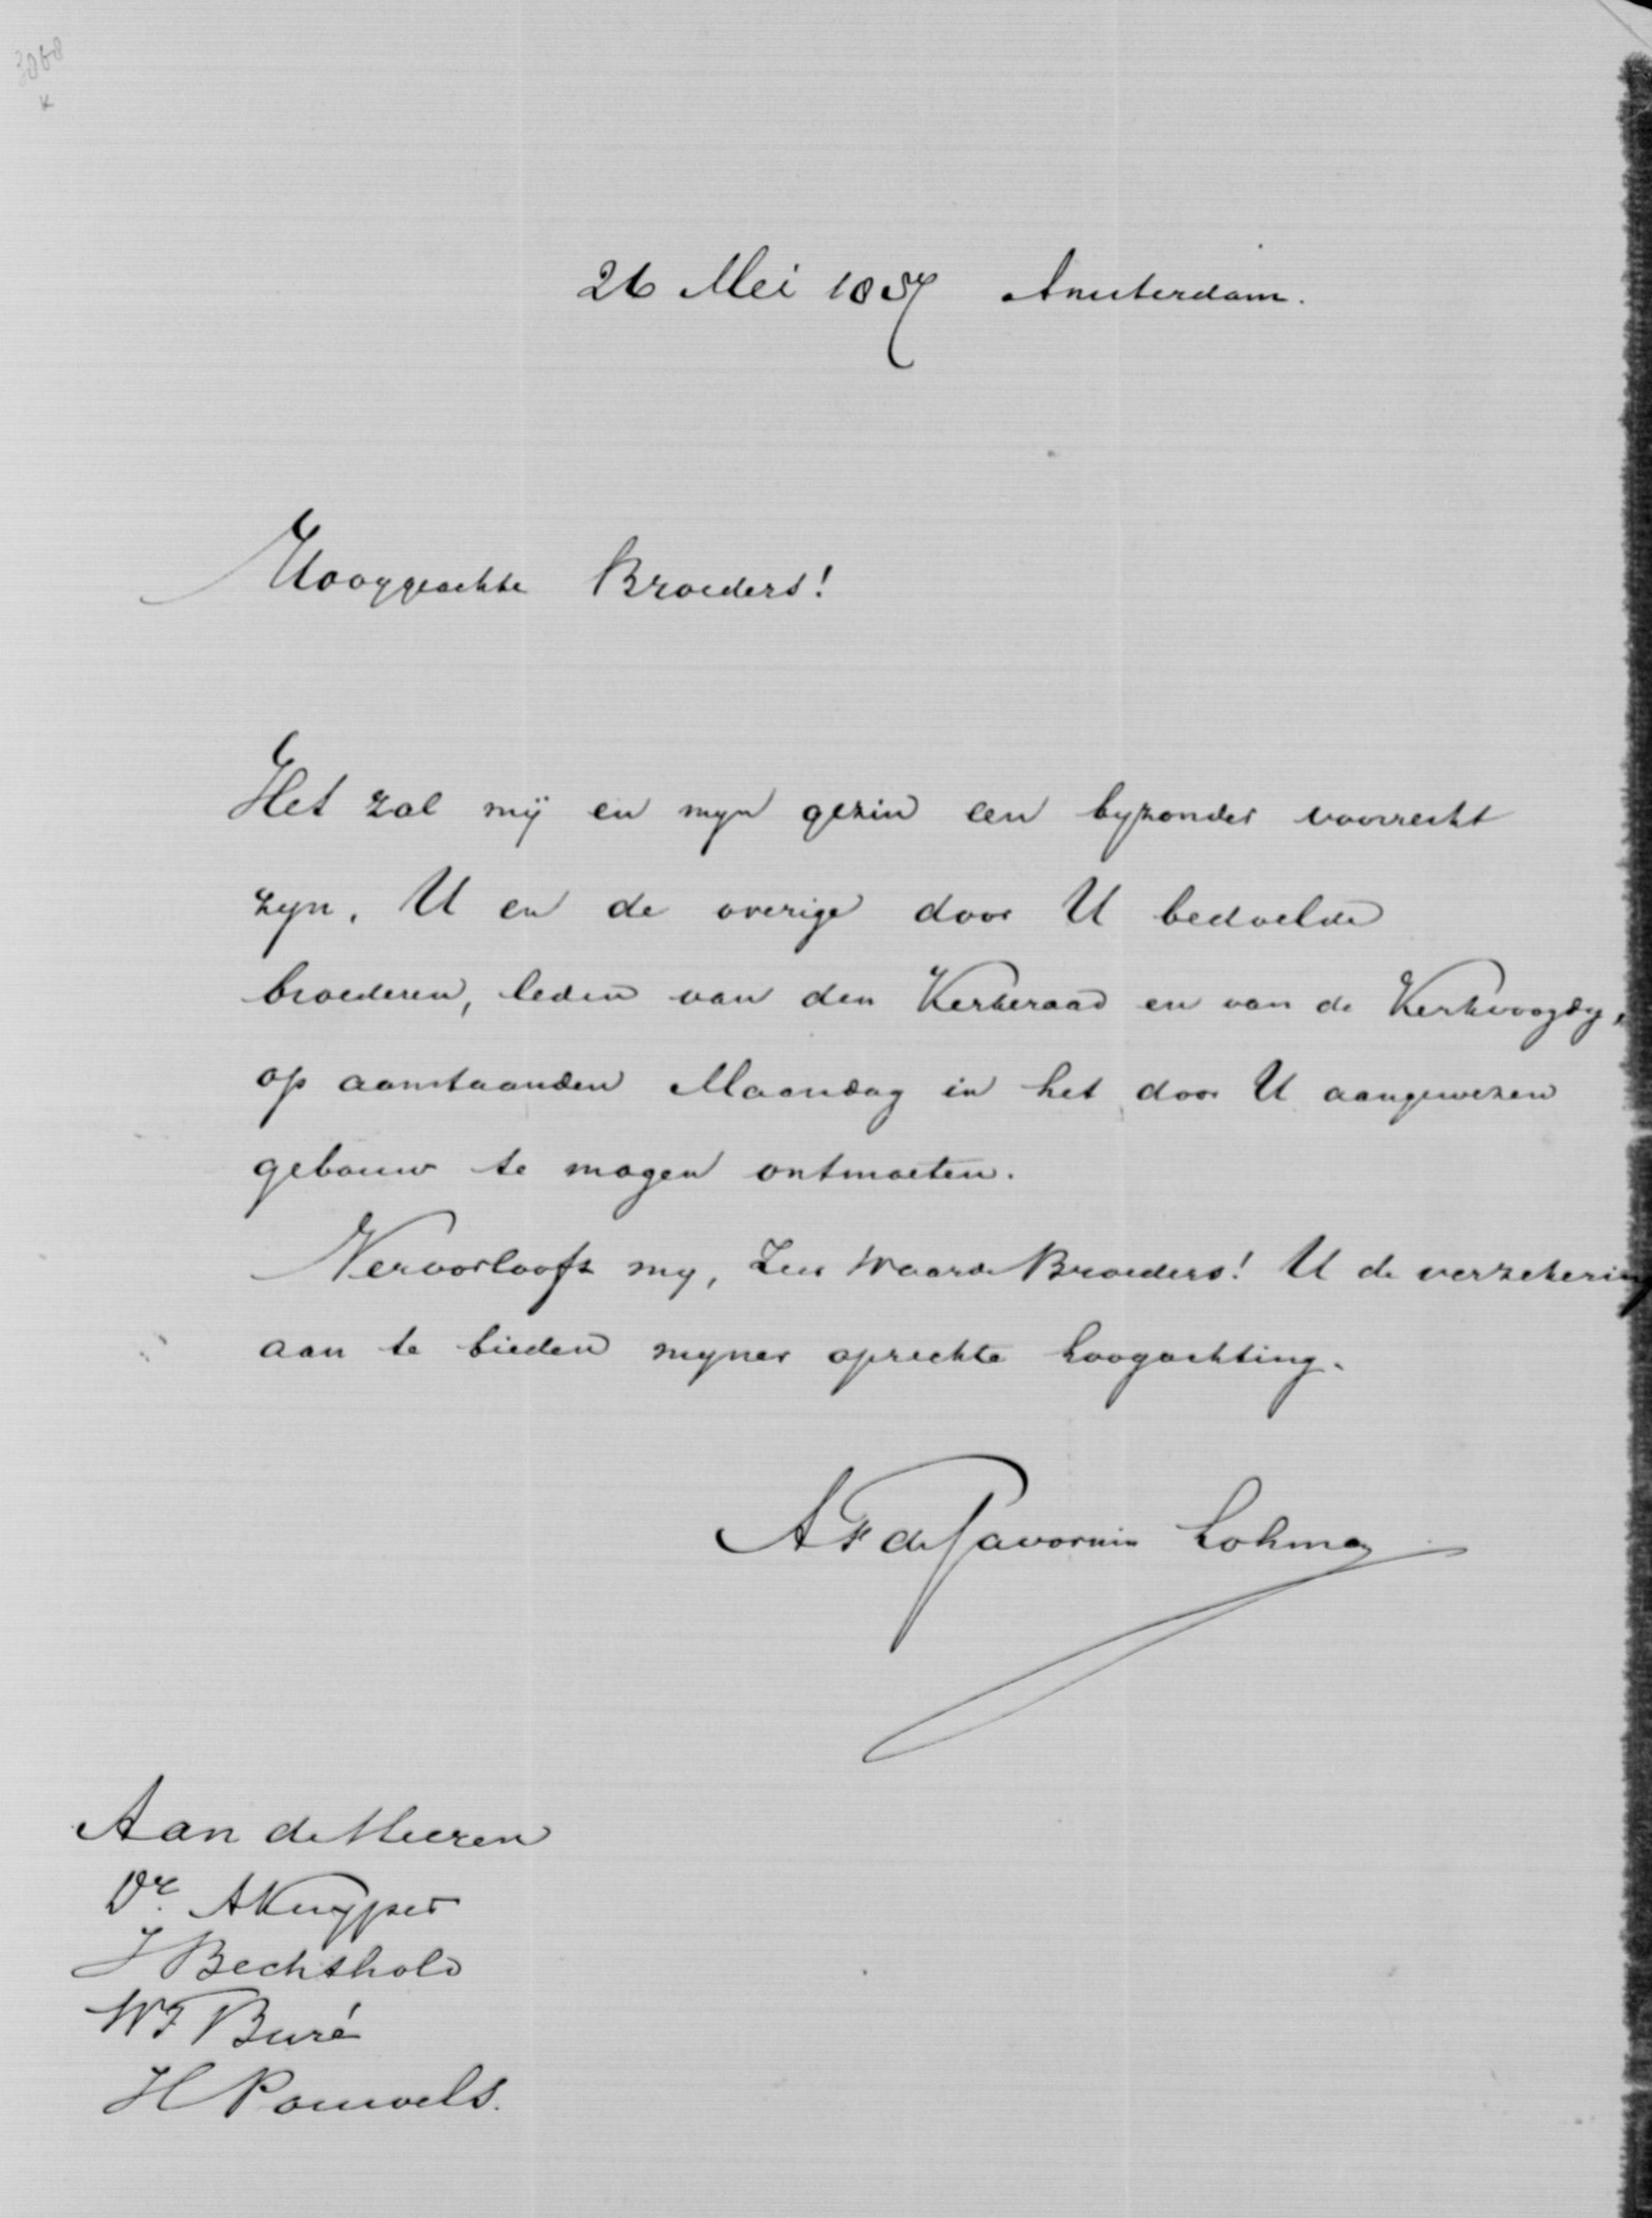 3068
K
26 Mei 1887 Amsterdam.
Hooggeachte Broeders!
Het zal mij en myn gezin een byzonder voorrecht
zyn, U en de overige door U bedoelde
broederen, leden van den Kerkeraad en van de Kerkvoogdy,
op aanstaanden Maandag in het door U aangewezen
gebouw te mogen ontmoeten.
Veroorlooft my, Zeer Waarde Broeders! U de verzekering
aan te bieden myner oprechte hoogachting.
AF de Savornin Lohman
Aan de Heeren
Dr. AKuyper
J Bechthold
WF Buré
H Pouwels.